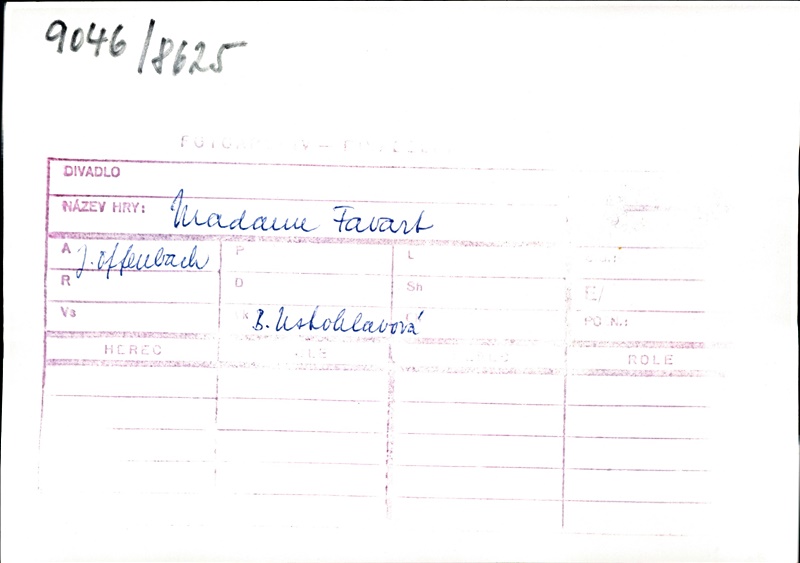 9046/8625
DIVADLO
NÁZEV HRY: Madame Favart
A J. Offenbach P L
R D Sh
Vs B. Ustohlavová PO N.:
HEREC ROLE